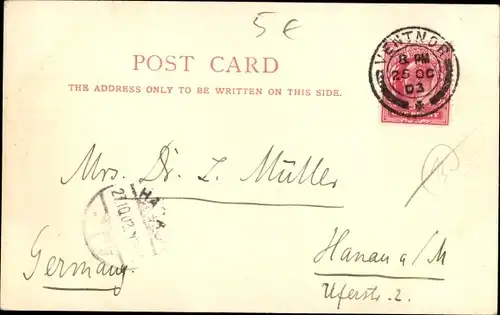 5 €
POST CARD
THE ADDRESS ONLY TO BE WRITTEN ON THIS SIDE.
VENTNOR
8 PM
25 OC
03
Mrs. Dr. L. Müller
HANAU
27.10.03
Hanau a/M
Germany.
Uferstr. 2.